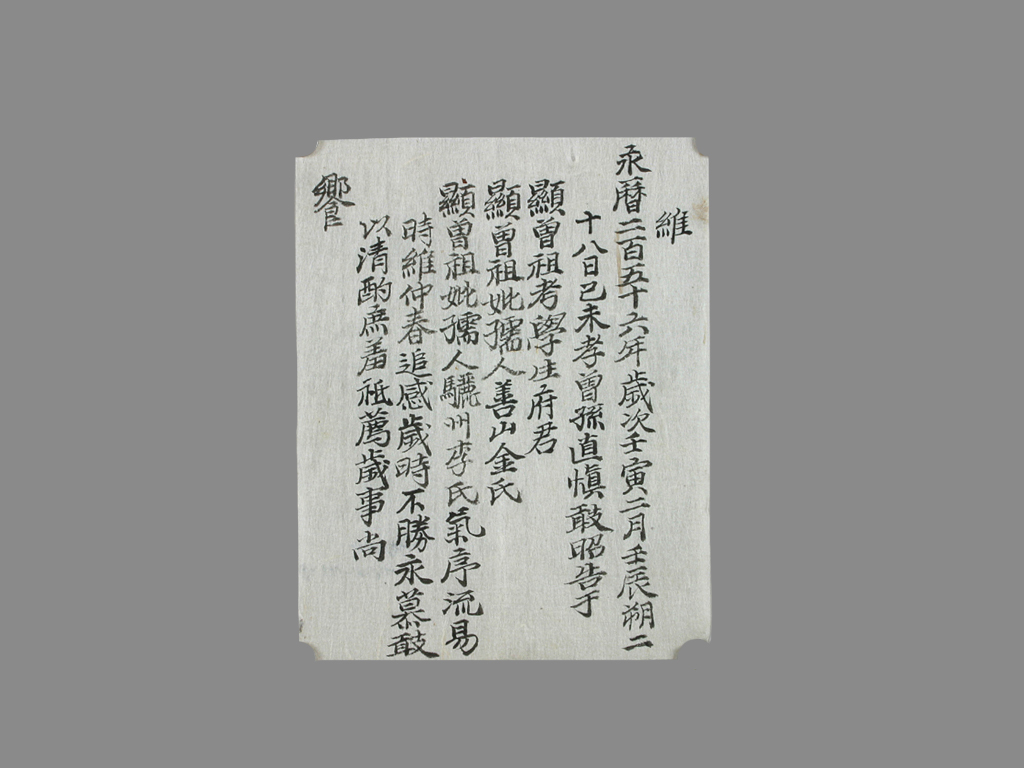 維
永曆二百五十六年歲次壬寅二月壬辰朔二
十八日己未孝曾孫直愼敢昭告于
顯曾祖考學生府君
顯曾祖妣孺人善山金氏
顯曾祖妣孺人驪州李氏氣序流易
時維仲春追感歲時不勝永慕敢
以清酌庶羞祗薦歲事尚
饗